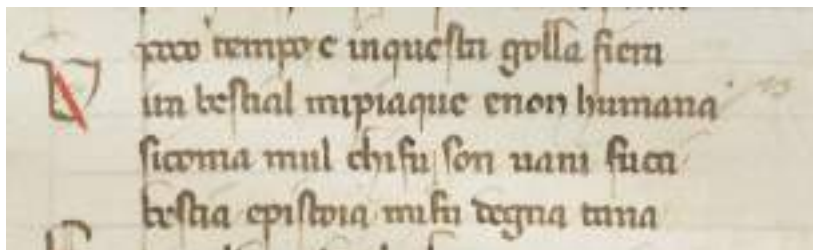 poco tempo e inquesta golla fiera
Vita bestial mipiaque enon humana
sicoma mul chifu son uani fuci
bestia epistoia mifu degna tana